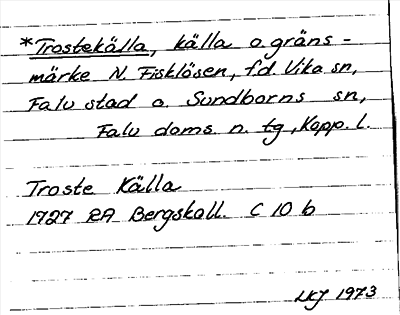 *Trostekälla, källa o. gräns-
märke N. Fisklösen, f.d. Vika sn,
Falu stad o. Sundborns sn,
Falu doms. n. tg, Kopp. l.
Troste Källa
1727 RA Bergskoll. C 10 b
LKJ 1973